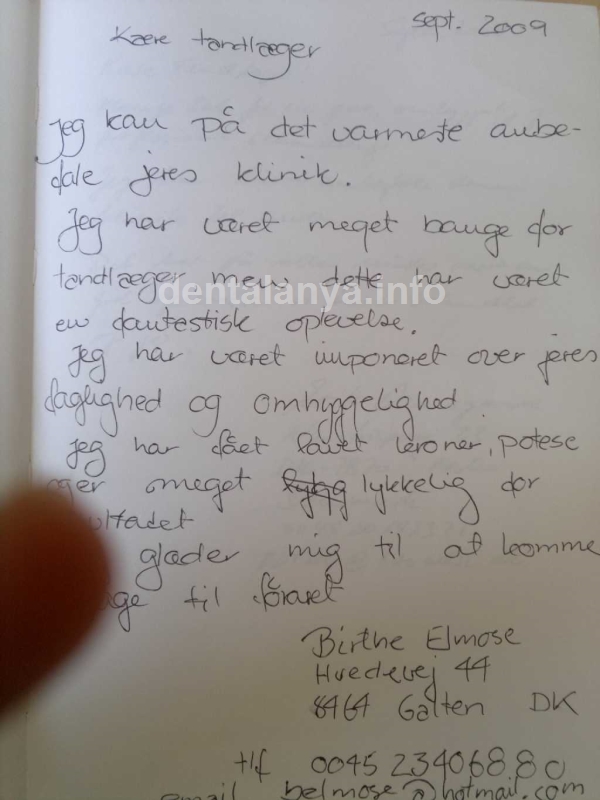 sept. 2009
Kære tandlæger
Jeg kan på det varmeste anbe-
fale jeres klinik.
Jeg har været meget bange for
tandlæger men dette har været
dentalanya.info
en fantestisk oplevelse.
Jeg har været imponeret over jeres
faglighed og omhyggelighed.
Jeg har fået lavet kroner, potese
meget lykkelig for
glæder mig til at komme
til foraret
Birthe Elmose
Hvedevej 44
8464 Galten DK
tlf 0045 23406880
email belmose@hotmail.com